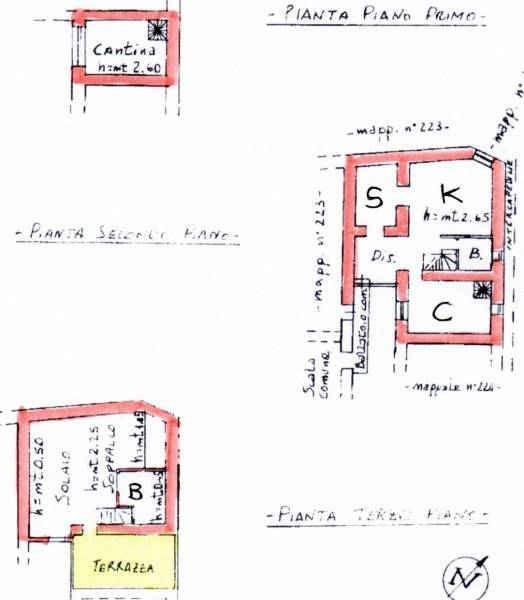 PIANTA PIANO PRIMO
CANTINA
h=mt 2.60
mapp. n° 223
mapp. n°
mapp. n° 223
S
K
h=mt 2.65
INTERCAPEDINE
PIANTA SECONDO PIANO
Dis.
B.
C
Ballatoio com
Scala
comune
mappale n° 224
h=mt 0.50
SOLAIO
h=mt 2.25
SOPPALCO
B
TERRAZZA
PIANTA TERZO PIANO
N